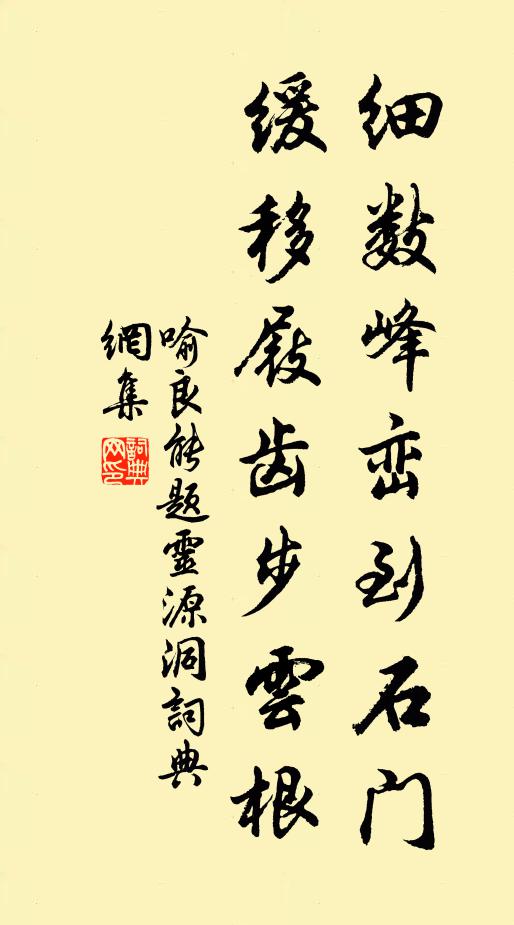 细数峰峦到石门
缓移屐齿步雲根
喻良能题靈源洞詞典
網集
詞典
网印